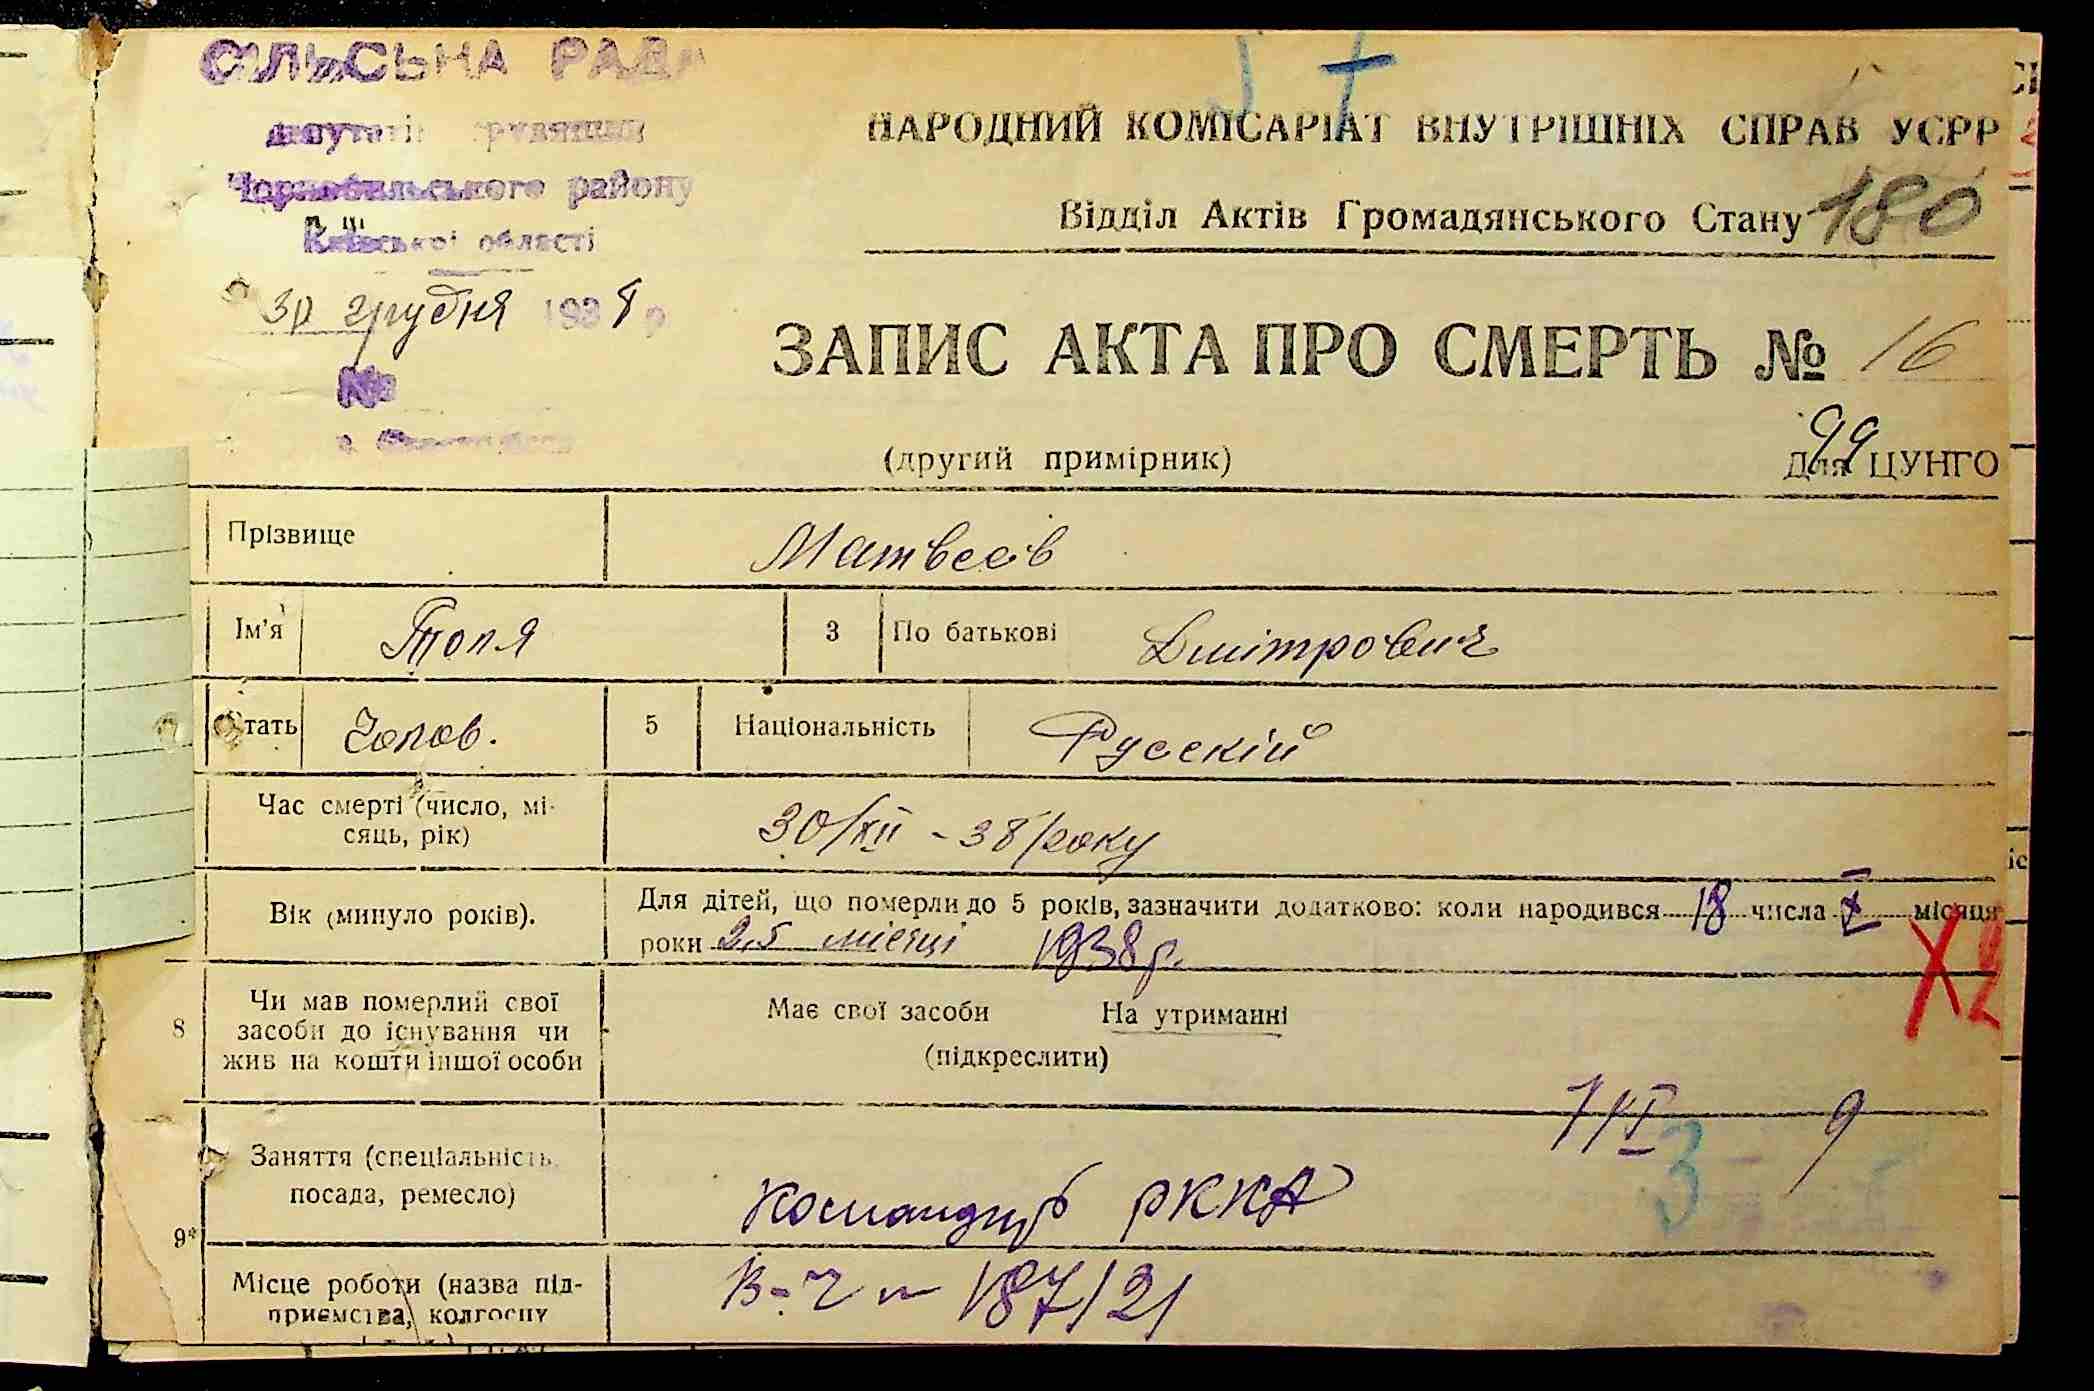 СІЛЬСЬКА РАДА
депутатів трудящих
Чорнобильського району
Київської області
30 грудня 1938 р
№
НАРОДНИЙ КОМІСАРІАТ ВНУТРІШНІХ СПРАВ УСРР
180
Відділ Актів Громадянського Стану
ЗАПИС АКТА ПРО СМЕРТЬ № 16
99
(другий примірник) Для ЦУНГО
Прізвище Матвеєів
Ім'я Толя 3 По батькові Дмітрович
Стать Чолов. 5 Національність Русскій
Час смерті (число, мі-
сяць, рік) 30/XII - 38/року
Вік (минуло років). Для дітей, що померли до 5 років, зазначити додатково: коли народився 18 числа X місяця
роки 2,5 місяці 1938 р.
8 Чи мав померлий свої
засоби до існування чи
жив на кошти іншої особи
Має свої засоби На утриманні
(підкреслити)
7/I 9
3
Заняття (спеціальність,
посада, ремесло) Командир РККА
9*
Місце роботи (назва під-
приємства, колгоспу В-Ч 187/21